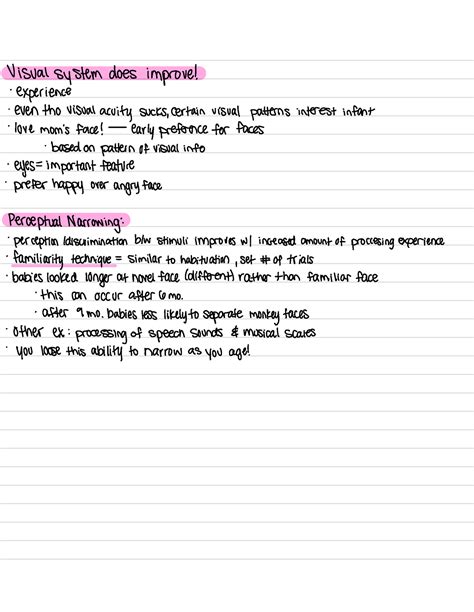 Visual system does improve!
· experience
· even tho visual acuity sucks, certain visual patterns interest infant
· love mom's face! — early preference for faces
· based on pattern of visual info
· eyes = important feature
· prefer happy over angry face
Perceptual Narrowing:
· perception/discrimination b/w stimuli improves w/ increased amount of processing experience
· familiarity technique = similar to habituation, set # of trials
· babies looked longer at novel face (different) rather than familiar face
· this can occur after 6 mo.
· after 9 mo. babies less likely to separate monkey faces
· other ex: processing of speech sounds & musical scales
· you loose this ability to narrow as you age!